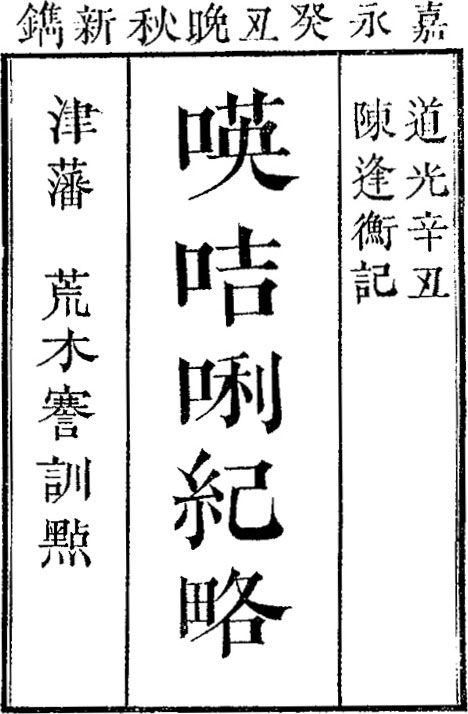 嘉永癸丑晚秋新鐫
道光辛丑
陳逢衡記
𠸄咭唎紀略
津藩 荒木謇訓點